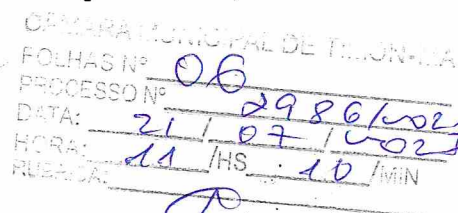 CÂMARA MUNICIPAL DE TIMON-MA
FOLHAS Nº 06
PROCESSO Nº 2986/202
DATA: 21 / 07 / 202
HORA: 11 /HS. 10 /MIN
RUBRICA: